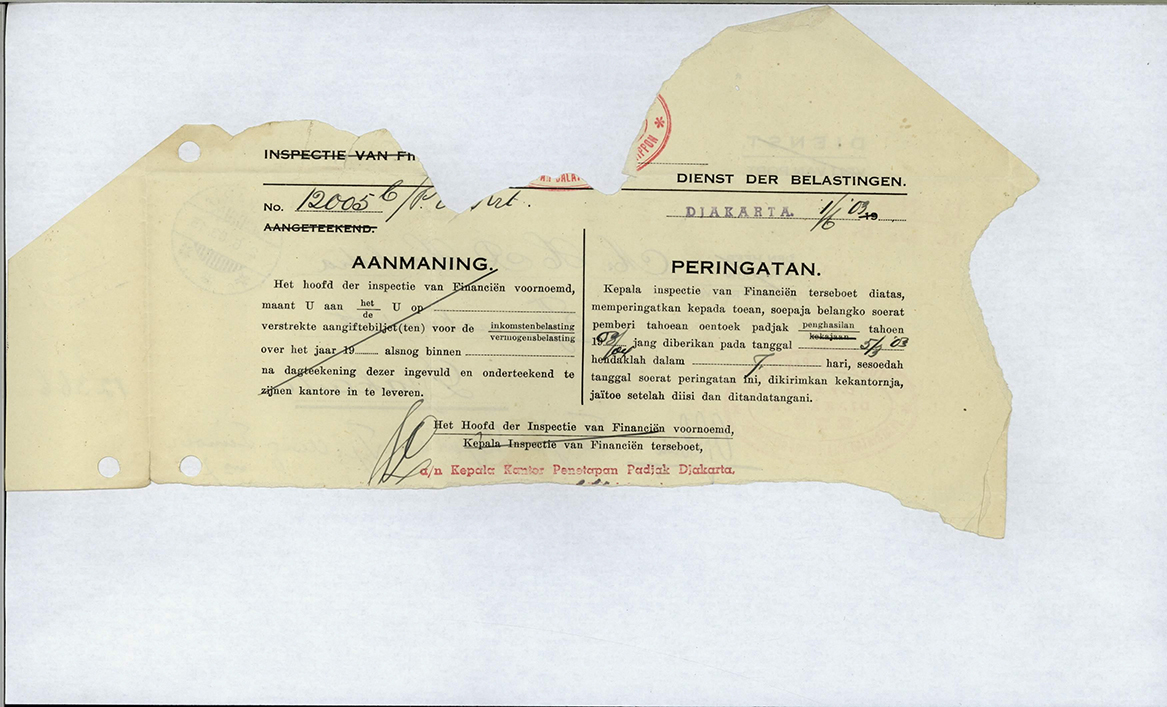 INSPECTIE VAN FI
NIPPON *
DIENST DER BELASTINGEN.
No. 12005
DJAKARTA. 1/6 03 19
AANGETEEKEND.
AANMANING.
Het hoofd der inspectie van Financiën voornoemd,
maant U aan het/de U op
verstrekte aangiftebiljet(ten) voor de inkomstenbelasting/vermogensbelasting
over het jaar 19 alsnog binnen
na dagteekening dezer ingevuld en onderteekend te
zijnen kantore in te leveren.
PERINGATAN.
Kepala inspectie van Financiën terseboet diatas,
memperingatkan kepada toean, soepaja belangko soerat
pemberi tahoean oentoek padjak penghasilan/kekajaan tahoen
1903/04 jang diberikan pada tanggal 5/3 '03
hendaklah dalam 7 hari, sesoedah
tanggal soerat peringatan ini, dikirimkan kekantornja,
jaïtoe setelah diisi dan ditandatangani.
Het Hoofd der Inspectie van Financiën voornoemd,
Kepala Inspectie van Financiën terseboet,
a/n Kepala Kantor Penetapan Padjak Djakarta.